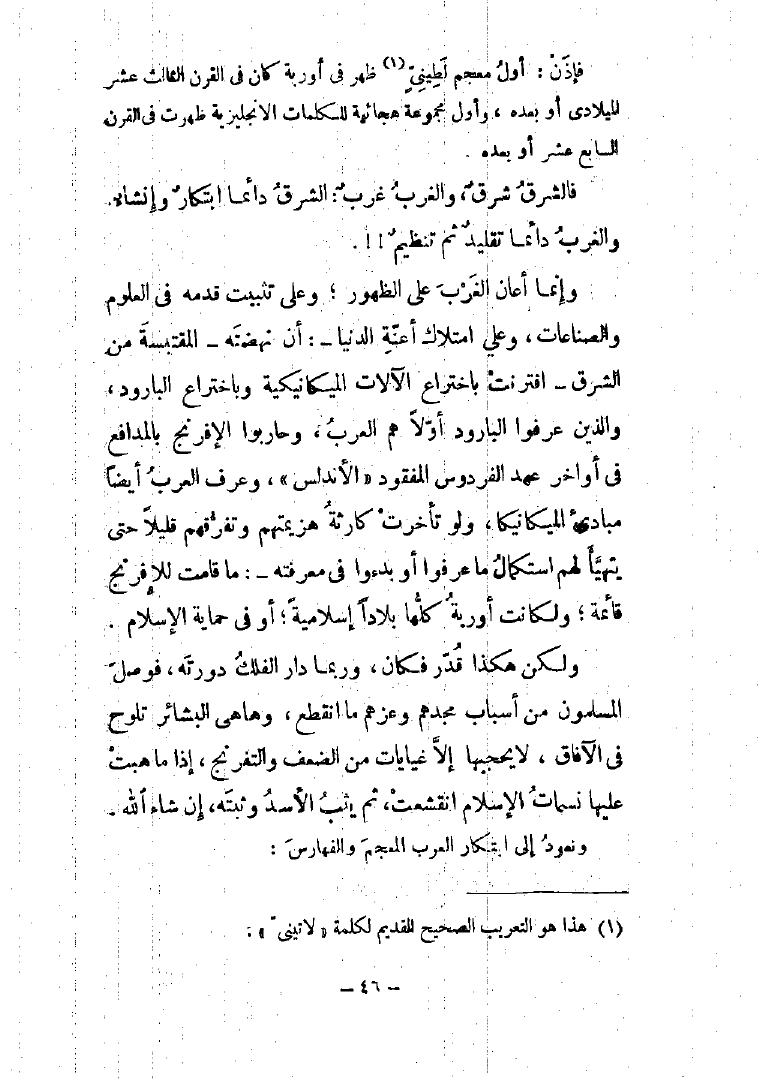 فإذَنْ : أولُ معجم لَطِينِيّ (١) ظهر فى أوربة كان فى القرن الثالث عشر
الميلادى أو بعده ، وأول مجموعة هجائية للكلمات الانجليزية ظهرت فى القرن
السابع عشر أو بعده .
فالشرقُ شرقٌ، والغربُ غربٌ: الشرقُ دائما ابتكارٌ وإنشاء.
والغربُ دائما تقليدٌ ثم تنظيمٌ !! .
وإنما أعان الغَرْبَ على الظهور ؛ وعلى تثبيت قدمه فى العلوم
والصناعات ، وعلي امتلاك أعنّةِ الدنيا ــ : أن نهضتَه ــ المقتبسةَ من
الشرق ــ اقترنتْ باختراع الآلات الميكانيكية وباختراع البارود ،
والذين عرفوا البارود أوّلاً هم العربُ ، وحاربوا الإفرنج بالمدافع
فى أواخر عهد الفردوس المفقود «الأندلس» ، وعرف العربُ أيضاً
مبادئَ الميكانيكا ، ولو تأخرتْ كارثةُ هزيمتهم وتفرّقهم قليلاً حتى
يتهيَّأَ لهم استكمالُ ما عرفوا أو بدءوا فى معرفته ــ : ما قامت للإفرنج
قائمة ؛ ولكانت أوربةُ كلُّها بلاداً إسلاميةً ؛ أو فى حماية الإسلام .
ولكن هكذا قُدّر فكان ، وربما دار الفلكُ دورتَه ، فوصلَ
المسلمون من أسباب مجدهم وعزهم ما انقطع ، وهاهى البشائر تلوح
فى الآفاق ، لايحجبها إلاَّ غيايات من الضعف والتفرنج ، إذا ما هبتْ
عليها نسماتُ الإسلام انقشعتْ، ثم يثبُ الأسدُ وثبتَه ، إن شاء الله .
ونعودُ إلى ابتكار العرب المعجمَ والفهارسَ :
(١) هذا هو التعريب الصحيح القديم لكلمة « لاتينىّ » .
ــ ٤٦ ــ